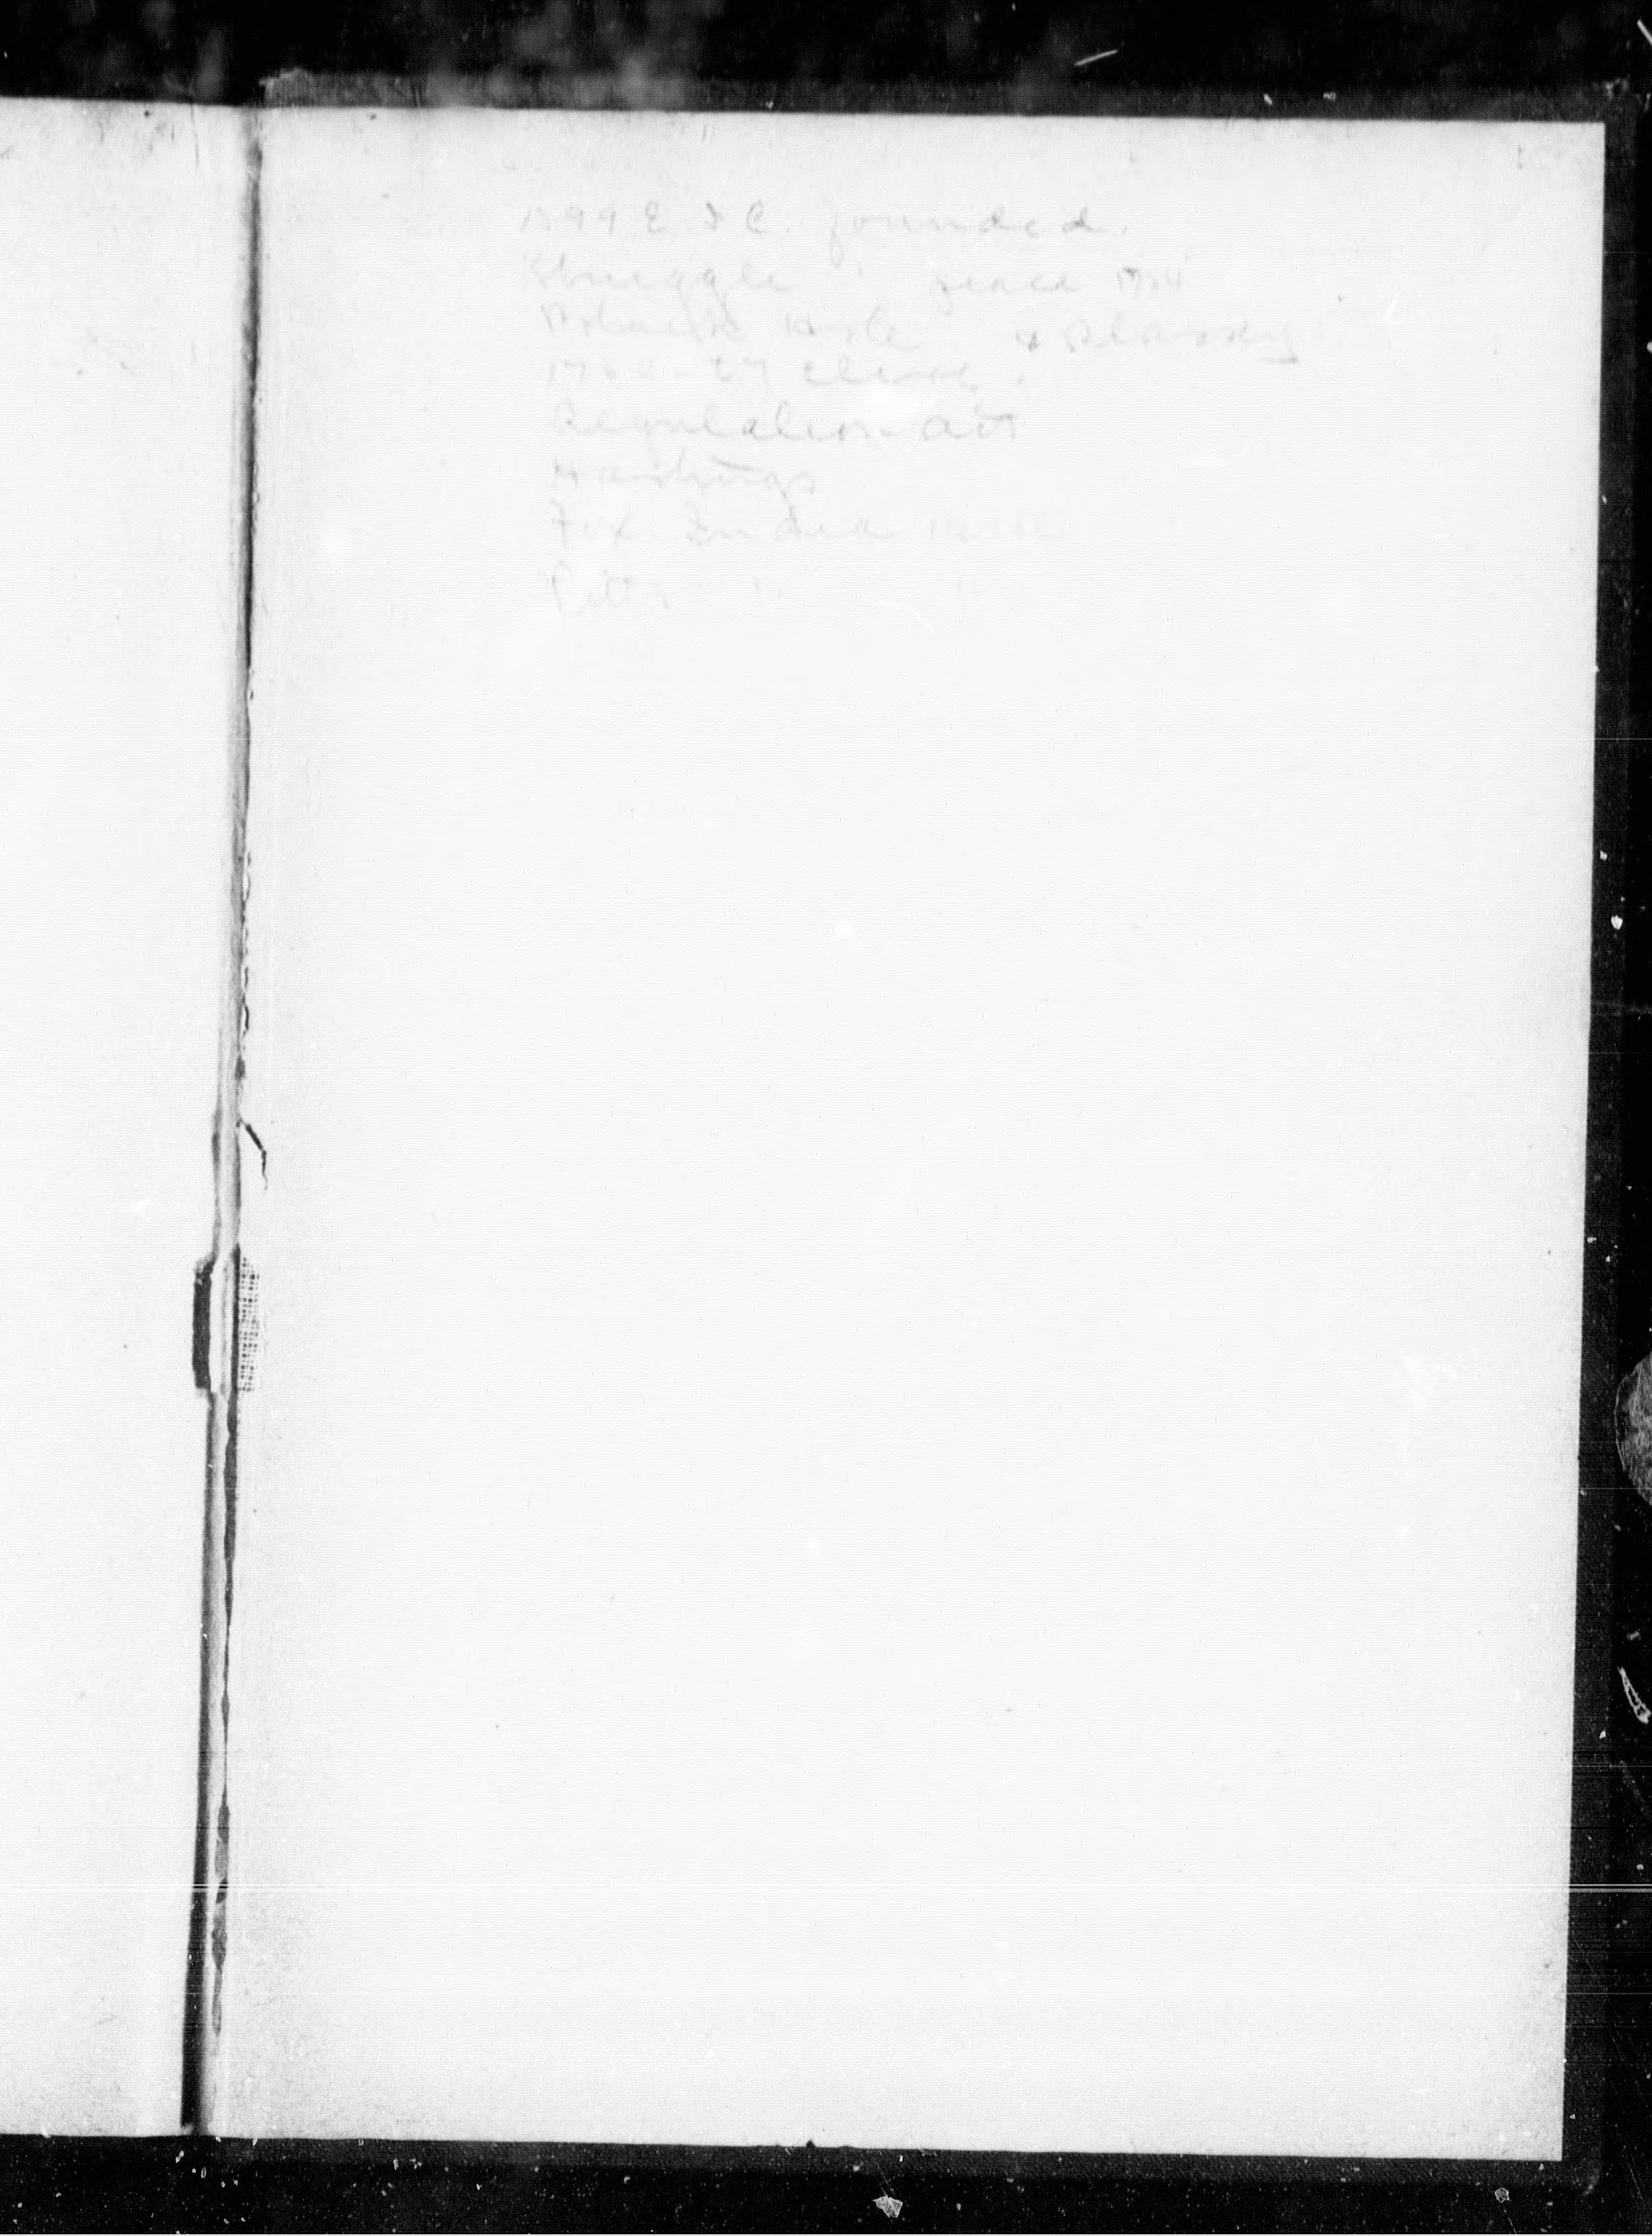 1599 E I C. founded.
Struggle " peace 1754
Black Hole & Plassey
1760-67 Clive.
Regulation Act
Hastings
Fox India Bill
Pitts " "